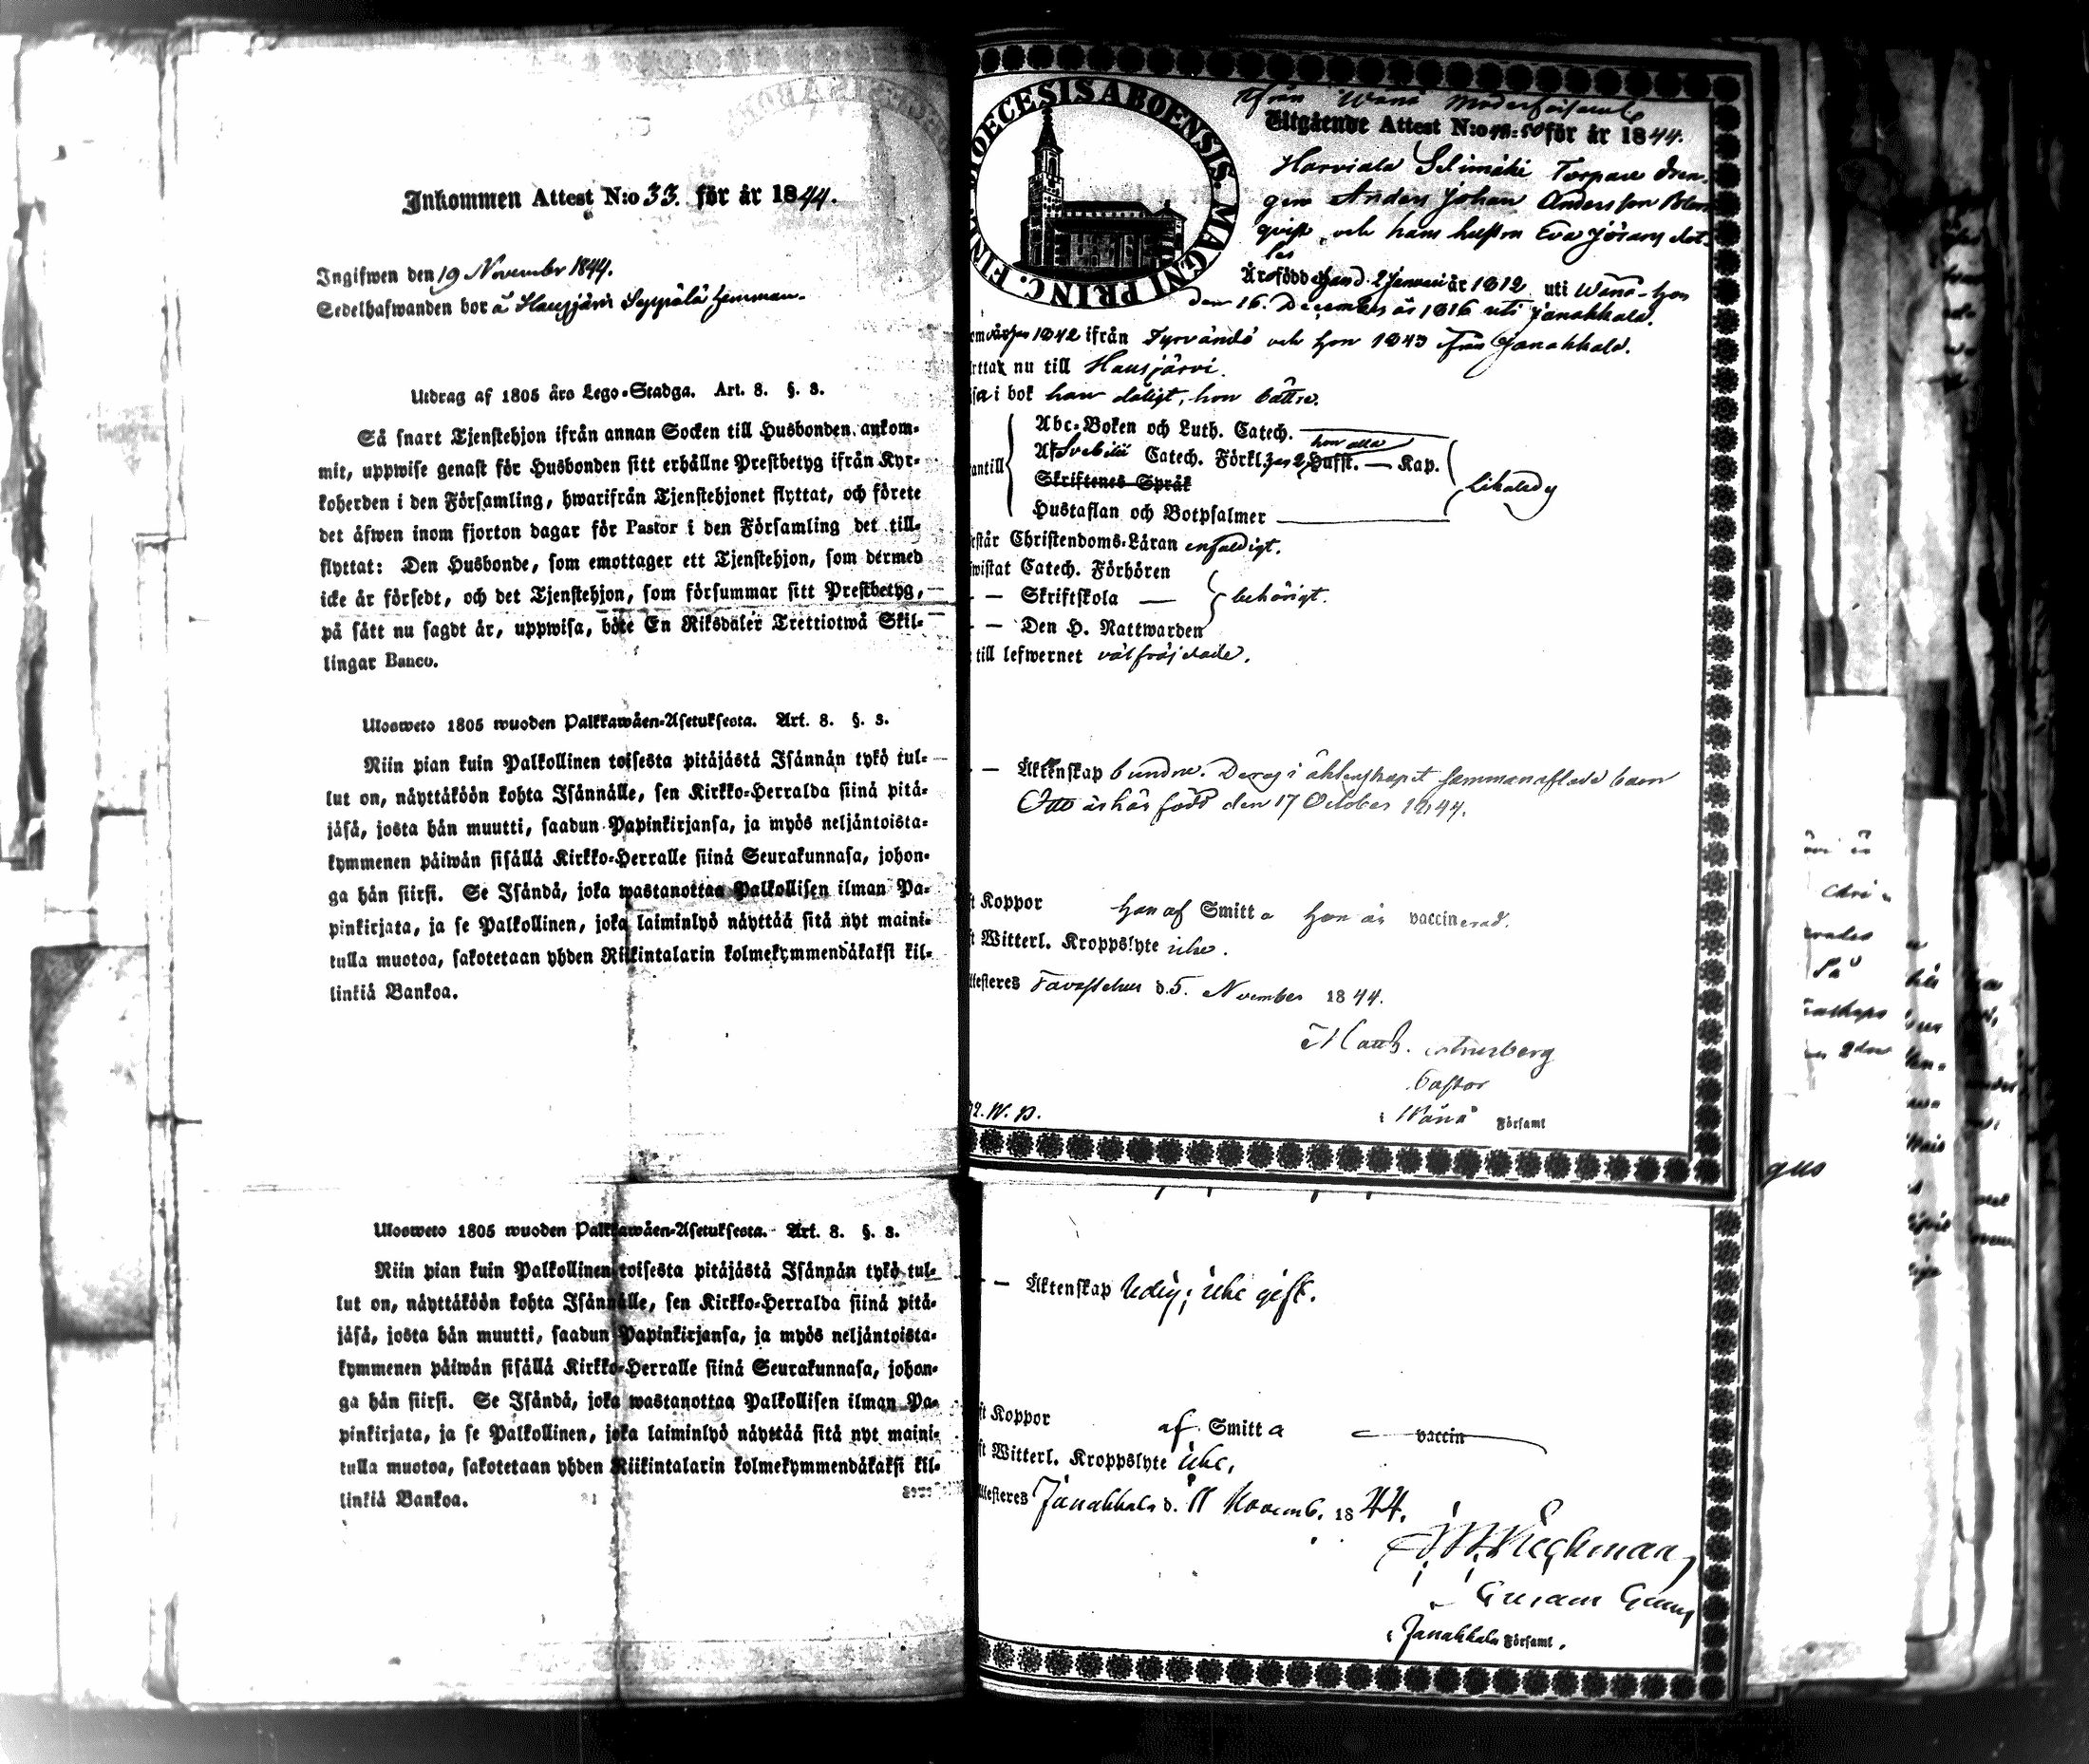 Inkommen Attest N:o 33. för år 1844.
Ingifwen den 19 November 1844.
Sedelhafwanden bor å Hausjärvi Seppälä hemman.
Utdrag af 1805 års Lego-Stadga. Art. 8. §. 3.
Så snart Tjenstehjon ifrån annan Socken till Husbonden ankom-
mit, uppwise genast för Husbonden sitt erhållne Prestbetyg ifrån Kyr-
koherden i den Församling, hwarifrån Tjenstehjonet flyttat, och förete
det äfwen inom fjorton dagar för Pastor i den Församling det till-
flyttat: Den Husbonde, som emottager ett Tjenstehjon, som dermed
icke är försedt, och det Tjenstehjon, som försummar sitt Prestbetyg,
på sätt nu sagdt är, uppwisa, böte En Riksdaler Trettiotwå Skil-
lingar Banco.
Ulosweto 1805 wuoden Palkkawäen-Asetuksesta. Art. 8. §. 3.
Niin pian kuin Palkollinen toisesta pitäjästä Isännän tykö tul-
lut on, näyttäköön kohta Isännälle, sen Kirkko-Herralda siinä pitä-
jäsä, josta hän muutti, saadun Papinkirjansa, ja myös neljäntoista-
kymmenen päiwän sisällä Kirkko-Herralle siinä Seurakunnasa, johon-
ga hän siirsi. Se Isändä, joka wastanottaa Palkollisen ilman Pa-
pinkirjata, ja se Palkollinen, joka laiminlyö näyttää sitä nyt maini-
tulla muotoa, sakotetaan yhden Riikintalarin kolmekymmendäkaksi kil-
linkiä Bankoa.
Ulosweto 1805 wuoden Palkkawäen-Asetuksesta. Art. 8. §. 3.
Niin pian kuin Palkollinen toisesta pitäjästä Isännän tykö tul-
lut on, näyttäköön kohta Isännälle, sen Kirkko-Herralda siinä pitä-
jäsä, josta hän muutti, saadun Papinkirjansa, ja myös neljäntoista-
kymmenen päiwän sisällä Kirkko-Herralle siinä Seurakunnasa, johon-
ga hän siirsi. Se Isändä, joka wastanottaa Palkollisen ilman Pa-
pinkirjata, ja se Palkollinen, joka laiminlyö näyttää sitä nyt maini-
tulla muotoa, sakotetaan yhden Riikintalarin kolmekymmendäkaksi kil-
linkiä Bankoa.
DIOECESIS ABOENSIS. MAGNI PRINC. FINL.
ifrån Wånå Moderförsaml
Utgående Attest N:o för år 1844.
Harviala Torpare dren-
gen Anders Johan Andersson Blom
qvist, och hans hustru Eva Jörans dot.
Är född han d. 2 Januari år 1812 uti Wånå- hon
den 16. December år 1816 uti Janakkala.
1842 ifrån Tyrvändö och hon 1843 från Janakkala.
nu till Hausjärvi.
i bok han dåligt, hon bättre.
Abc-Boken och Luth. Catech.
Af Svebilii Catech. Förkl. hon alla Hufst. — Kap.
Skriftenes Språk
Hustaflan och Botpsalmer
likaledes
Christendoms-Läran enfaldigt.
Catech. Förhören
— — Skriftskola — behörigt.
— — Den H. Nattwarden
till lefwernet välfräjdade.
— — Äktenskap bundne. Deras i äktenskapet sammanaflade barn
Otto är här född den 17 October 1844.
Koppor han af Smitta hon är vaccinerad.
Witterl. Kroppslyte icke.
Tavastehus d. 5. November 1844.
Pastor
i Wånå Församl
— — Äktenskap ledig; icke gift.
Koppor af Smitta vaccin
Witterl. Kroppslyte icke,
Janakkala d. 11 Novemb. 1844.
i Janakkala Församl.